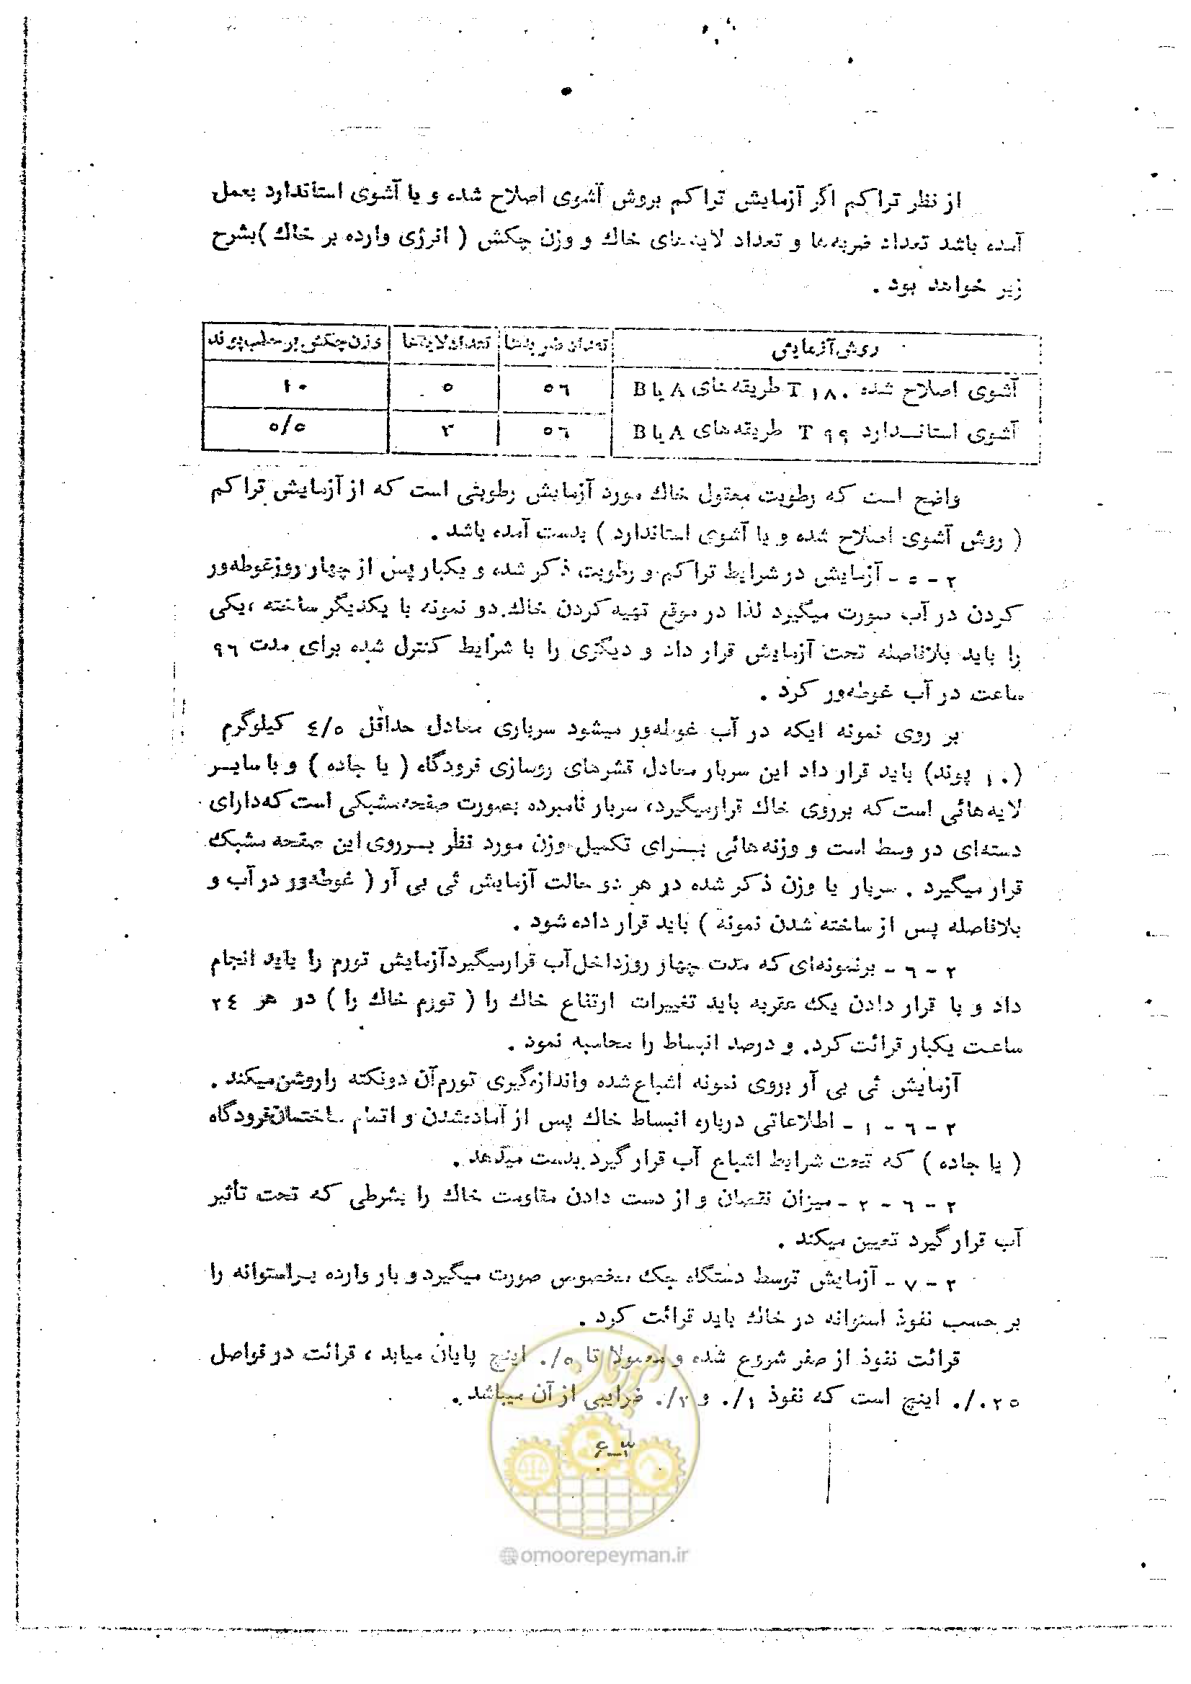 از نظر تراکم اگر آزمایش تراکم بروش آشوی اصلاح شده و یا آشوی استاندارد بعمل
آمده باشد تعداد ضربه‌ها و تعداد لایه‌های خاك و وزن چکش ( انرژی وارده بر خاك )بشرح
زیر خواهد بود .
روش آزمایش تعداد ضربه‌ها تعداد لایه‌ها وزن چکش بر حسب پوند
آشوی اصلاح شده T ۱۸۰ طریقه‌های A یا B ۵٦ ۵ ۱۰
آشوی استاندارد T ۹۹ طریقه‌های A یا B ۵٦ ۳ ۵/۵
واضح است که رطوبت معقول خاك مورد آزمایش رطوبتی است که از آزمایش تراکم
( روش آشوی اصلاح شده و یا آشوی استاندارد ) بدست آمده باشد .
۲ - ۵ - آزمایش در شرایط تراکم و رطوبت ذکر شده و یکبار پس از چهار روز غوطه‌ور
کردن در آب صورت میگیرد لذا در موقع تهیه کردن خاك دو نمونه با یکدیگر ساخته ،یکی
را باید بلافاصله تحت آزمایش قرار داد و دیگری را با شرایط کنترل شده برای مدت ۹٦
ساعت در آب غوطه‌ور کرد .
بر روی نمونه ایکه در آب غوطه‌ور میشود سرباری معادل حداقل ٤/۵ کیلوگرم
(۱۰ پوند) باید قرار داد این سربار معادل قشرهای روسازی فرودگاه ( یا جاده ) و یا سایر
لایه هائی است که برروی خاك قرارمیگیرد، سربار نامبرده بصورت صفحه مشبکی است که دارای
دسته‌ای در وسط است و وزنه هائی برای تکمیل وزن مورد نظر برروی این صفحه مشبك
قرار میگیرد . سربار با وزن ذکر شده در هر دو حالت آزمایش ئی بی آر ( غوطه‌ور در آب و
بلافاصله پس از ساخته شدن نمونه ) باید قرار داده شود .
۲ - ٦ - برنمونه‌ای که مدت چهار روزداخل آب قرارمیگیردآزمایش تورم را باید انجام
داد و با قرار دادن یك عقربه باید تغییرات ارتفاع خاك را ( تورم خاك را ) در هر ۲٤
ساعت یکبار قرائت کرد. و درصد انبساط را محاسبه نمود .
آزمایش ئی بی آر بروی نمونه اشباع شده واندازه‌گیری تورم آن دونکته را روشن میکند .
۲ - ٦ - ۱ - اطلاعاتی درباره انبساط خاك پس از آماده‌شدن و اتمام ساختمان فرودگاه
( یا جاده ) که تحت شرایط اشباع آب قرار گیرد بدست میدهد .
۲ - ٦ - ۲ - میزان نقصان و از دست دادن مقاومت خاك را بشرطی که تحت تأثیر
آب قرار گیرد تعیین میکند .
۲ - ۷ - آزمایش توسط دستگاه جك مخصوص صورت میگیرد و بار وارده براستوانه را
بر حسب نفوذ استوانه در خاك باید قرائت کرد .
قرائت نفوذ از صفر شروع شده و معمولا تا ۵/. اینچ پایان میابد ، قرائت در فواصل
۰۲۵/. اینچ است که نفوذ ۱/. و ۲/. ضرایبی از آن میباشد .
امور پیمان
۳-۶
@omoorepeyman.ir